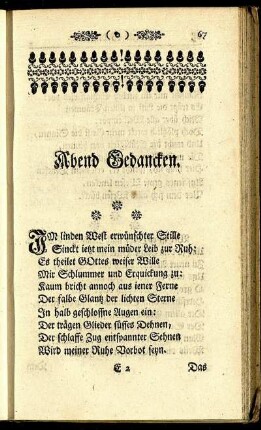 ( o ) 67
Abend Gedancken.
IM linden West erwünschter Stille
Sinckt ietzt mein müder Leib zur Ruh:
Es theilet GOttes weiser Wille
Mir Schlummer und Erquickung zu:
Kaum bricht annoch aus iener Ferne
Der falbe Glantz der lichten Sterne
In halb geschloßne Augen ein:
Der trägen Glieder süsses Dehnen,
Der schlaffe Zug entspannter Sehnen
Wird meiner Ruhe Vorbot seyn.
E 2 Das